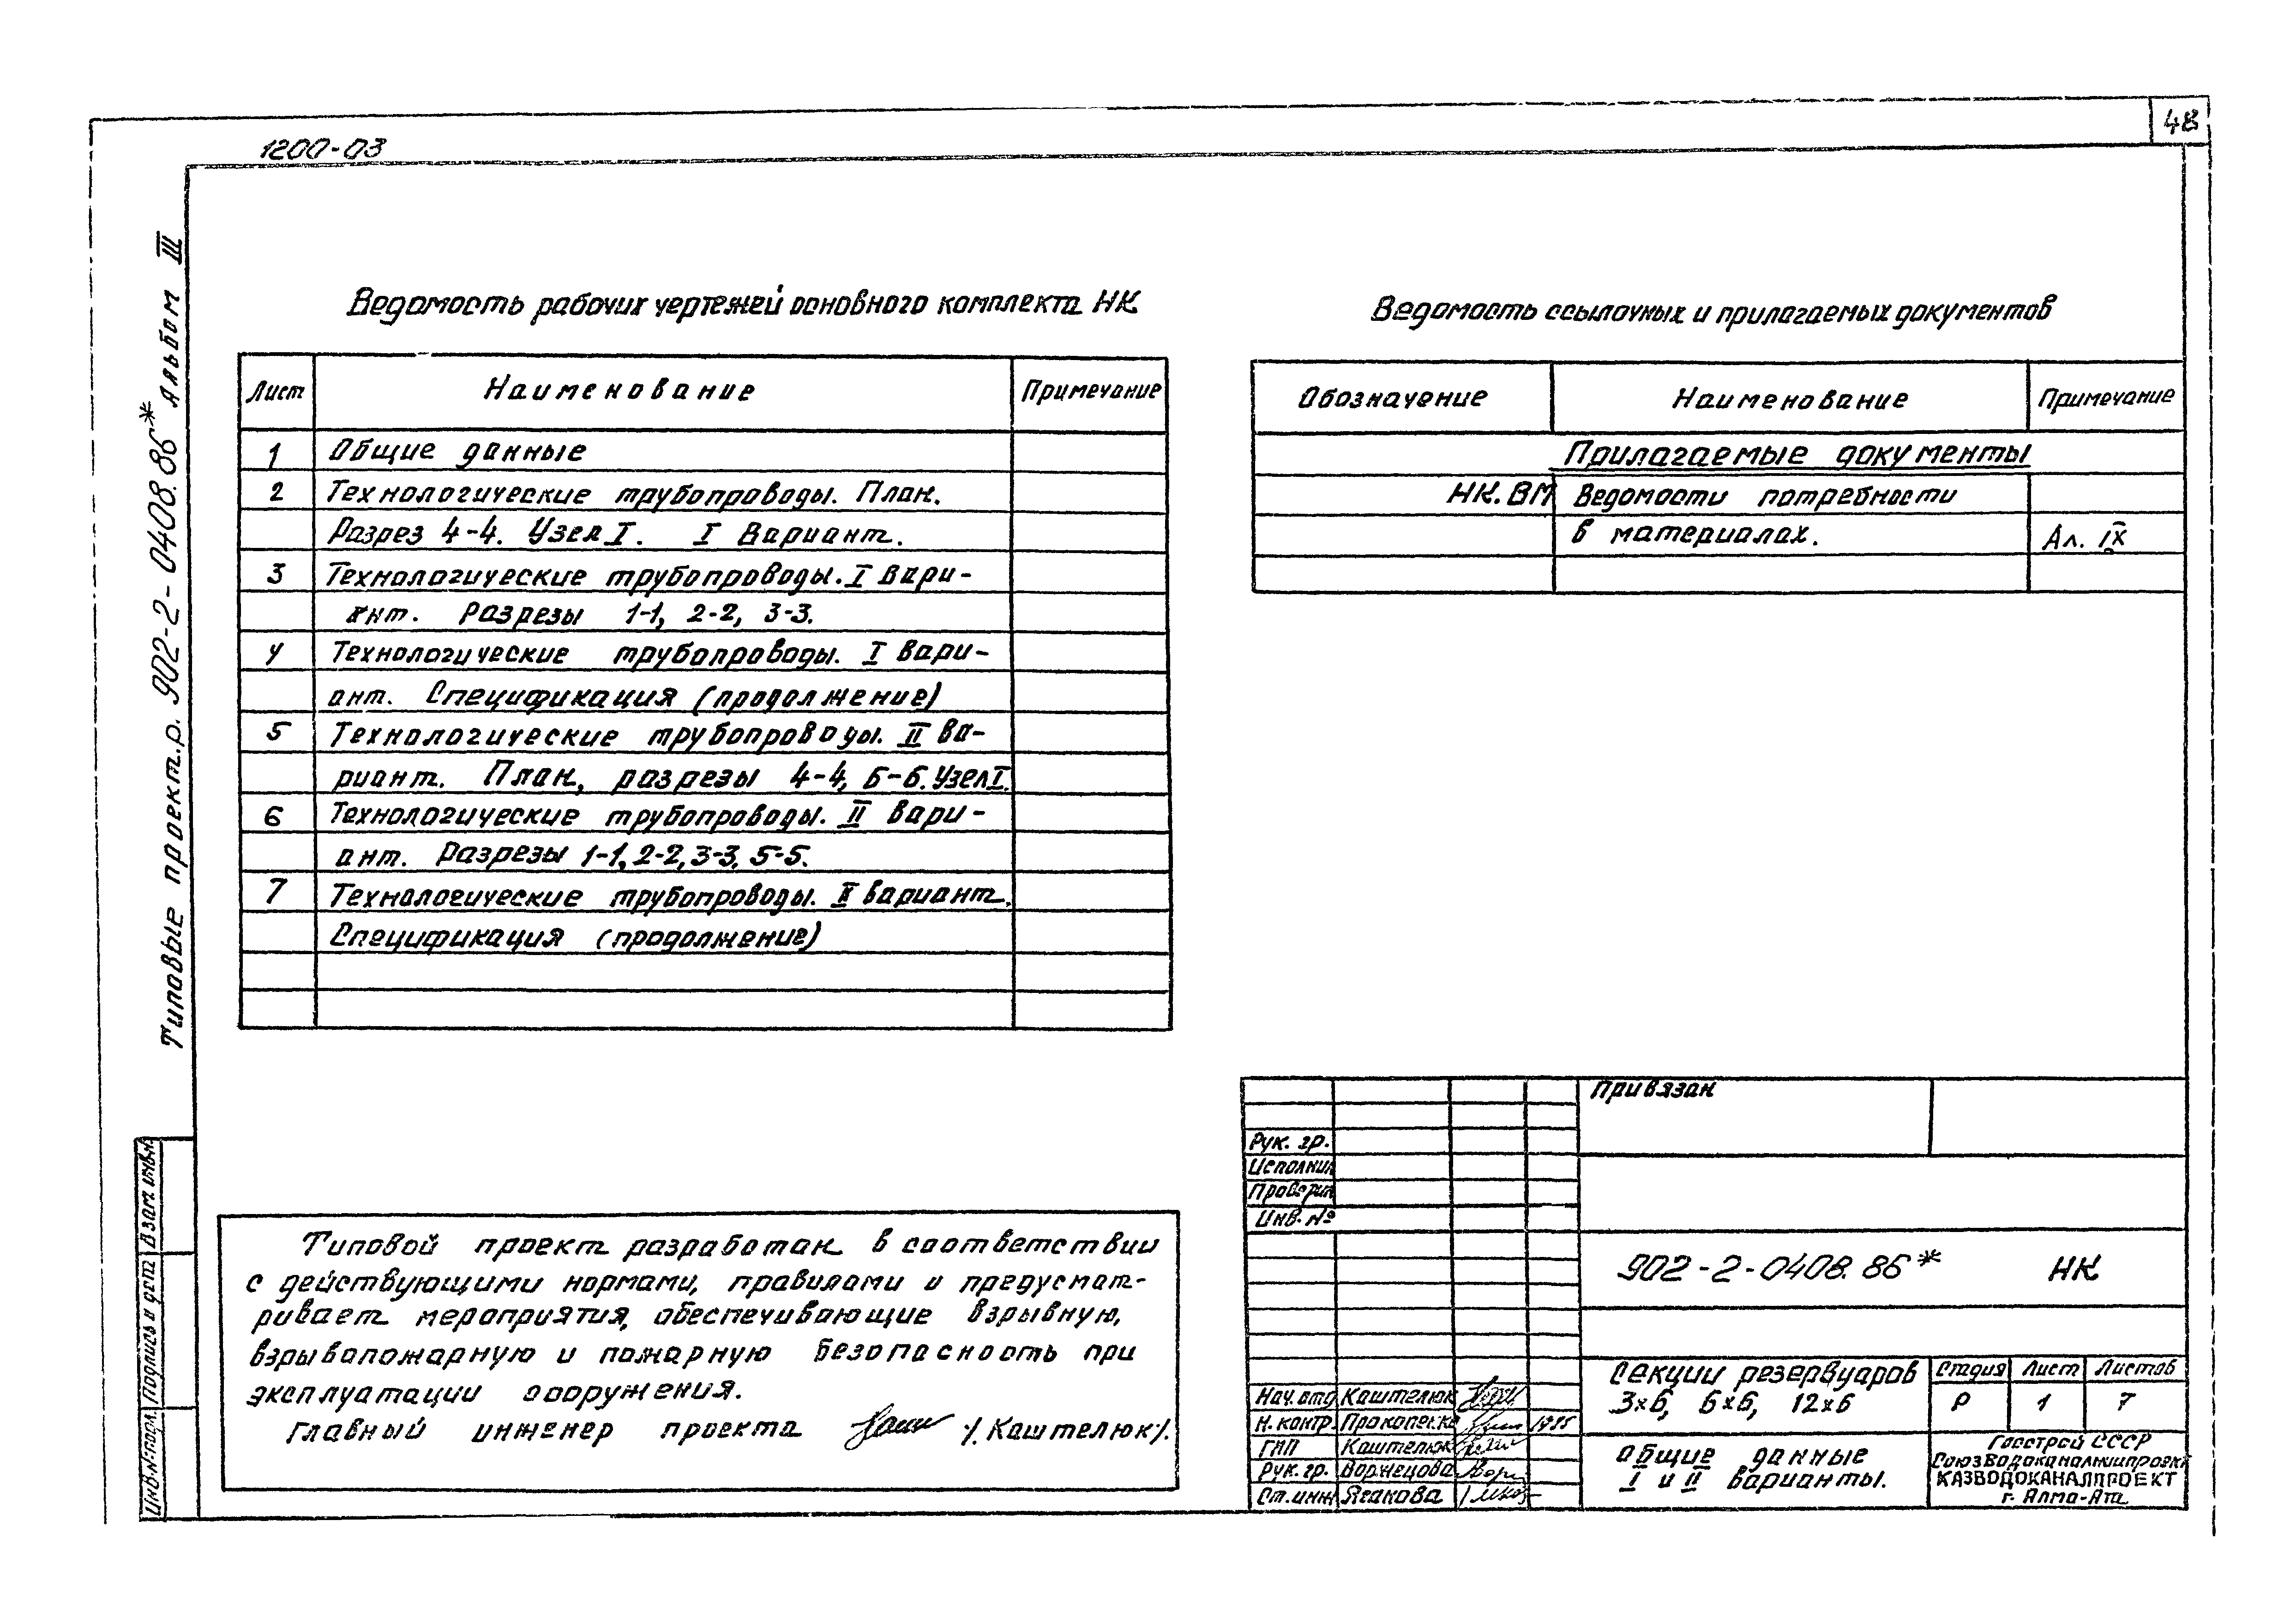 48
1200-03
Типовые проект.р. 902-2-0408.86* Альбом III
Ведомость рабочих чертежей основного комплекта НК
Лист Наименование Примечание
1 Общие данные
2 Технологические трубопроводы. План.
Разрез 4-4. Узел I. I Вариант.
3 Технологические трубопроводы. I вари-
ант. Разрезы 1-1, 2-2, 3-3.
4 Технологические трубопроводы. I вари-
ант. Спецификация (продолжение)
5 Технологические трубопроводы. II ва-
риант. План, разрезы 4-4, 6-6. Узел I.
6 Технологические трубопроводы. II вари-
ант. Разрезы 1-1, 2-2, 3-3, 5-5.
7 Технологические трубопроводы. II вариант.
Спецификация (продолжение)
Ведомость ссылочных и прилагаемых документов
Обозначение Наименование Примечание
Прилагаемые документы
НК. ВМ Ведомости потребности
в материалах. Ал. IX
Типовой проект разработан в соответствии
с действующими нормами, правилами и предусмат-
ривает мероприятия, обеспечивающие взрывную,
взрывопожарную и пожарную безопасность при
эксплуатации сооружения.
Главный инженер проекта /.Каштелюк/.
Взам. инв.н.
Подпись и дата
Инв.N подл.
Привязан
Рук. гр.
Исполнил
Проверил
Инв. №
902-2-0408.86* НК
Секции резервуаров
3×6, 6×6, 12×6
Стадия Лист Листов
Р 1 7
Нач. отд Каштелюк
Н. контр. 1985
ГИП Каштелюк
Рук. гр. Воржецова
Ст. инж Ягакова
Общие данные
I и II варианты.
Госстрой СССР
Союзводоканалниипроект
КАЗВОДОКАНАЛПРОЕКТ
г. Алма-Ата